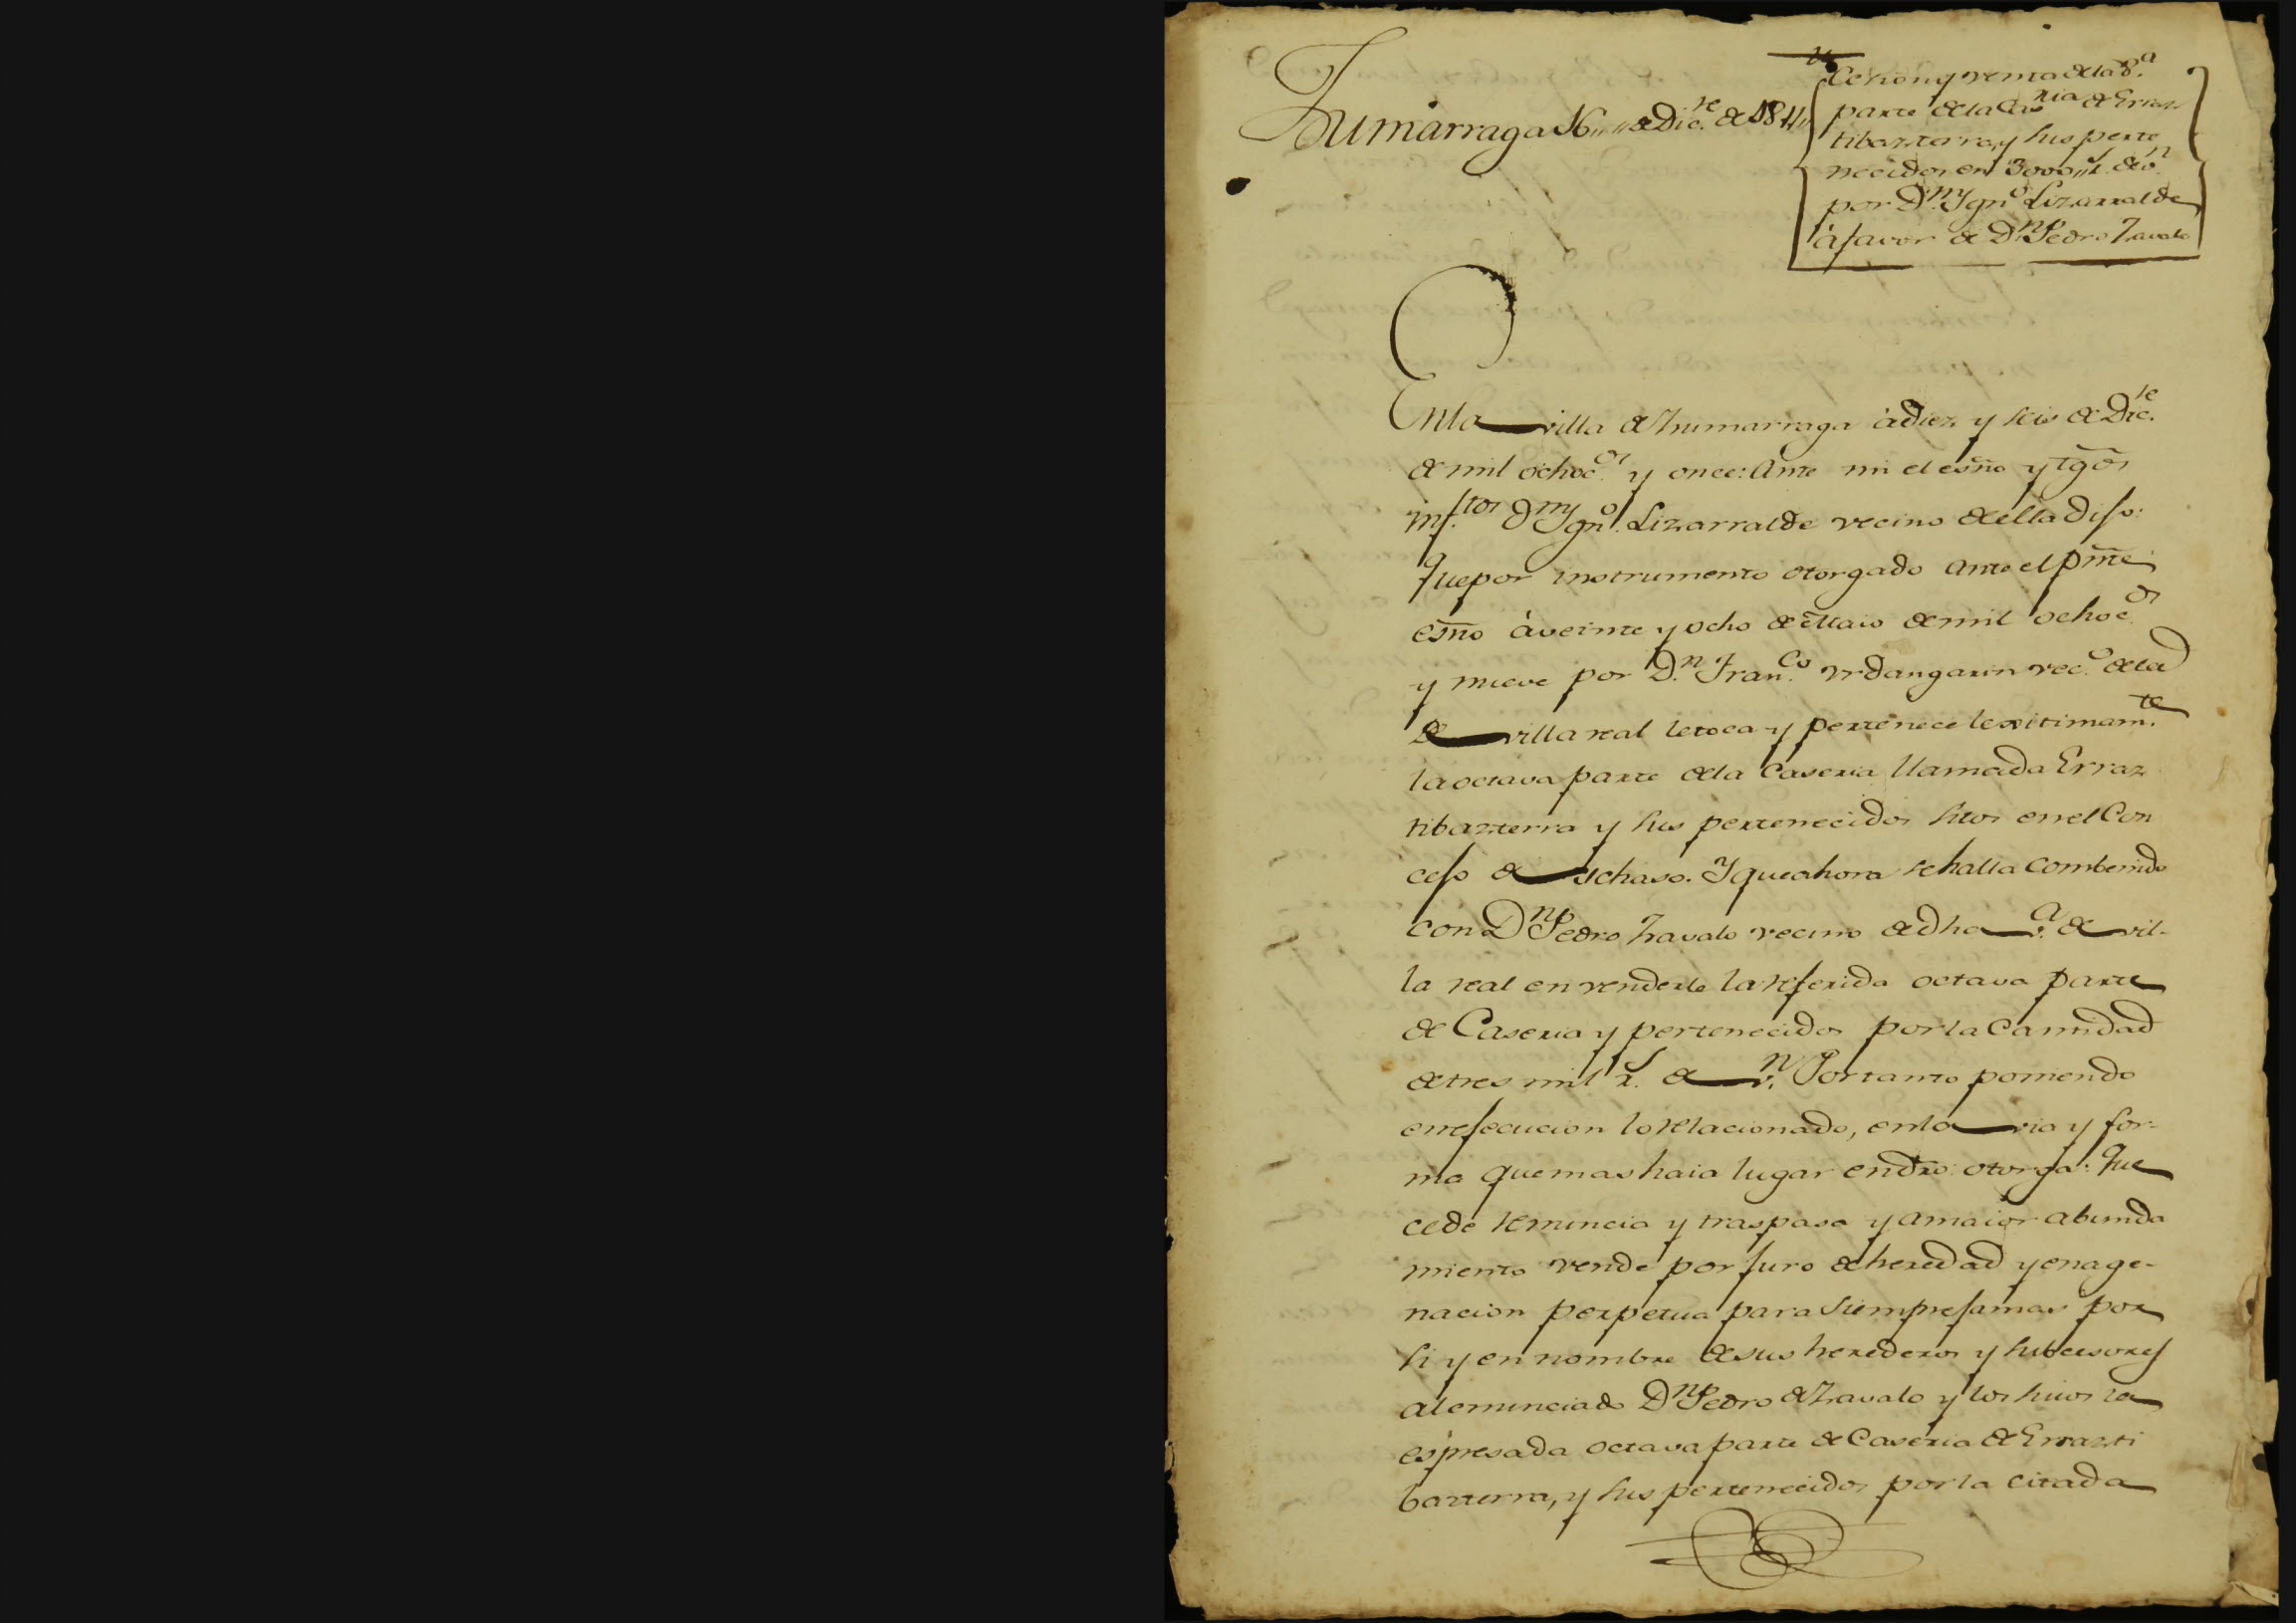 Zumarraga 16,, de Dic.re de 1811,,
Cesion y venta de la 8.a
parte de la Cas.ria de Erraz
tibazterra, y sus perte
necidos en 3000,, r.s de v.n
por D.n Ygn.o Lizarralde
à favor de D.n Pedro Zavalo
En la villa de Zumarraga à diez y seis de Dic.re
de mil ochoc.os y once: Ante mi el esño y tgõs
inf.tos D.n Ygn.o Lizarralde vecino de ella dijo:
Que por instrumento otorgado ante el pñte
esño à veinte y ocho de Maio de mil ochoc.os
y nueve por D.n Fran.co Vrdangarin vec.o de la
de villa real le toca y pertenece lexitimam.te
la octava parte de la Caseria llamada Erraz
tibazterra y sus pertenecidos sitos en el Con
cejo de Ychaso. Y que ahora se halla combenido
con D.n Pedro Zavalo vecino de dha v.a de vil-
la real en venderle la referida octava parte
de Caseria y pertenecidos por la Cantidad
de tres mil r.s de v.n Por tanto poniendo
en ejecucion lo relacionado, en la via y for-
ma que mas haia lugar en dro: otorga: Que
cede renuncia y traspasa y a maior abunda
miento vende por juro de heredad y enage-
nacion perpetua para siempre jamas por
si y en nombre de sus herederos y subcesores
al enunciado D.n Pedro de Zavalo y los suios la
espresada octava parte de Caseria de Errazti
bazterra, y sus pertenecidos por la citada